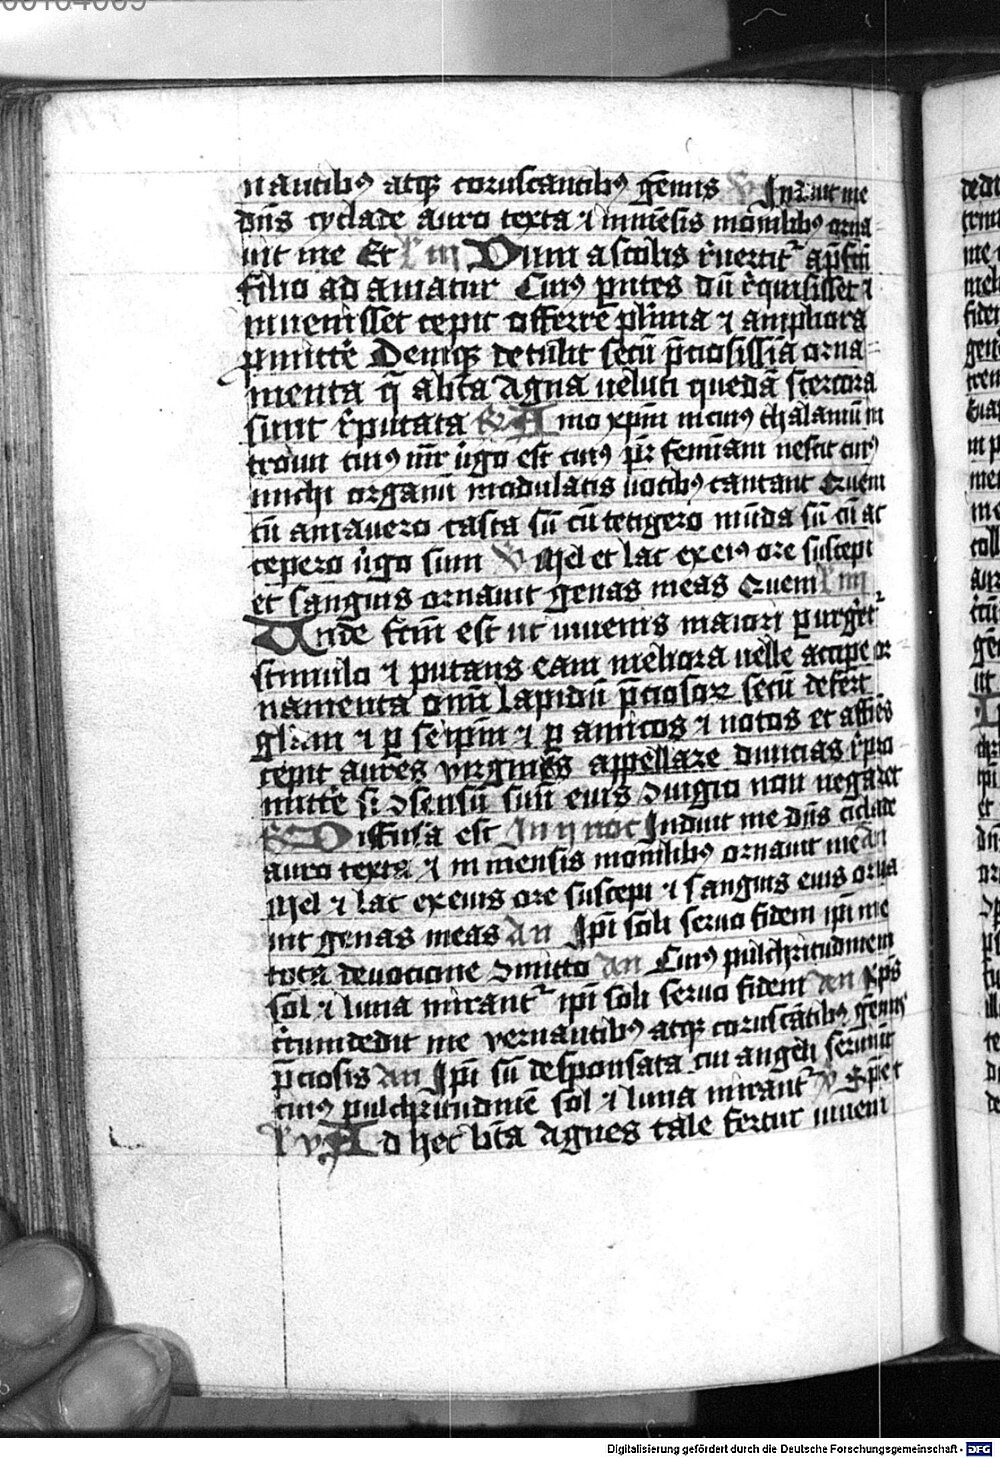 nantibꝰ atqꝫ coruscantibꝰ gēmis V Induit me
dn̄s cyclade auro texta ⁊ inmēsis monilibꝰ orna
uit me Et l iij Dum a scolis r̄uertit᷑ a p̄fcti
filio adamatur Cuiꝰ pntes dū r̄quisisset ⁊
inuenisset cepit offerre plima ⁊ ampliora
ꝓmitte Deniqꝫ detulit secū p̄ciosissīa orna-
menta q̄ ab btā Agna ueluti quedā stercora
sunt r̄putata R Amo xp̄m in cuiꝰ thalamū in
troiui cuiꝰ mr̄ ūgo est cuiꝰ pr̄ feminam nescit cuiꝰ
michi organū modulatis uocibꝰ cantant Quem
cū amauero casta sū cū tetigero mūda sū cū ac
cepero ūgo sum V Mel et lac ex eiꝰ ore suscepi
et sanguis ornauit genas meas Quem l iiij
Unde fctm est ut iuuenis maiori ꝑurget᷑
stimulo ⁊ putans eam meliora uelle accipe or-
namenta omnī lapidū p̄ciosoꝝ secū defert
gl̄iam ⁊ ꝑ seipm̄ ⁊ ꝑ amicos ⁊ notos et affīes
cepit aures virginis appellare diuicias r̄pro
mitte si ꝯsensū suū eius ꝯiugio non negaret
R Diffusa est In ij noc Induit me dn̄s ciclade
auro texta ⁊ inmensis monilibꝰ ornauit me An
Mel ⁊ lac ex eius ore suscepi ⁊ sanguis eius orna
uit genas meas An Ipī soli seruo fidem ipī me
tota deuocione ꝯmitto An Cuiꝰ pulchritudinem
sol ⁊ luna mirant᷑ ipī soli seruo fidem An Xp̄s
circumdedit me vernantibꝰ atqꝫ coruscātibꝰ gēmis
p̄ciosis An Ipī sū desponsata cui angeli seruiūt
cuiꝰ pulchritudinē sol ⁊ luna mirant᷑ V
l v Ad hec btā Agnes tale fertur iuueni